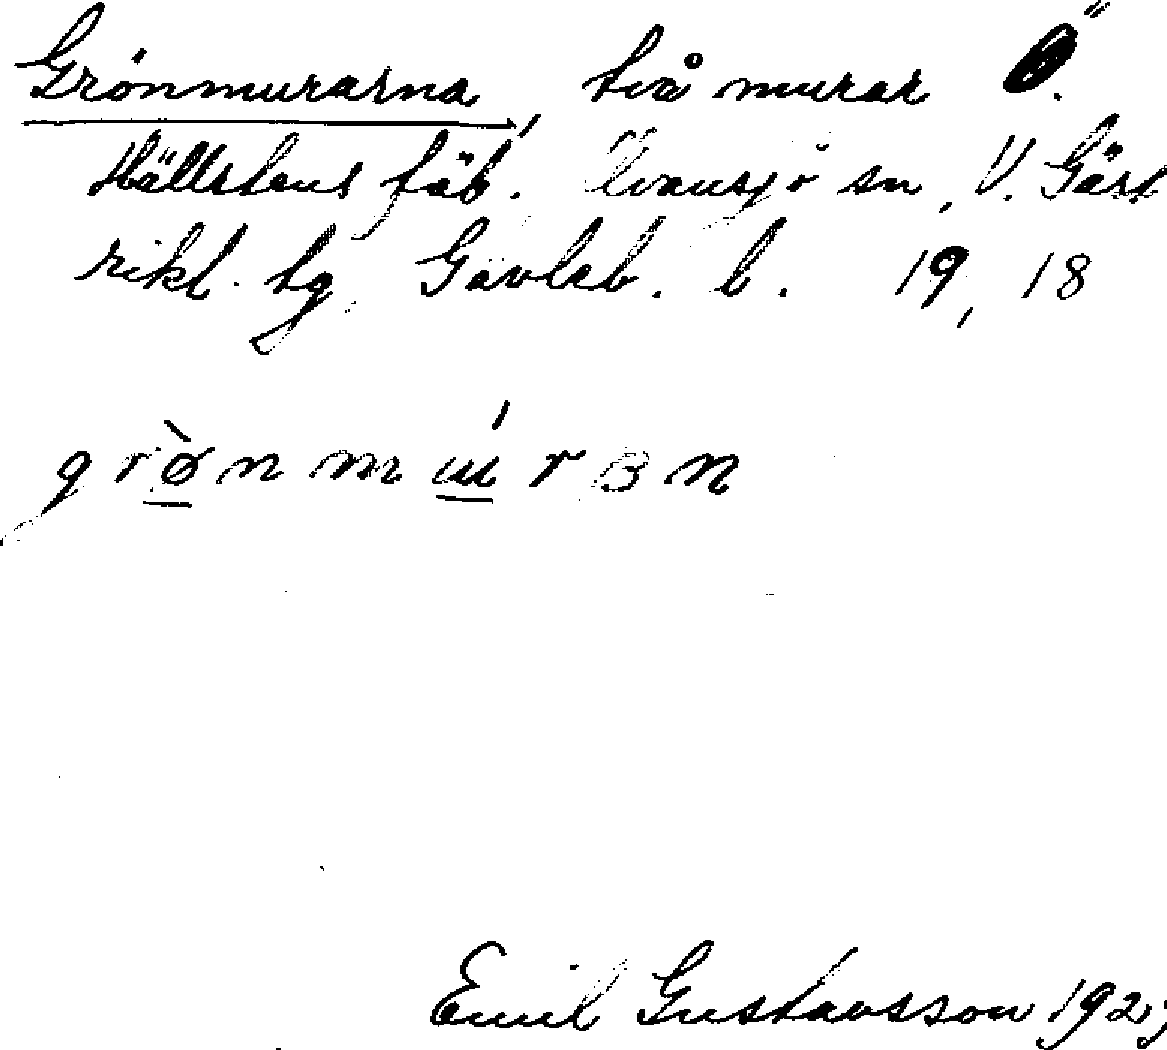 Grönmurarna, två murar Ö.
Hällstens fäb. Svansjö sn, V. Gäst
rikl. tg Gävleb. l. 19, 18
g r ò n m ú r ɜ n
Emil Gustavsson 192